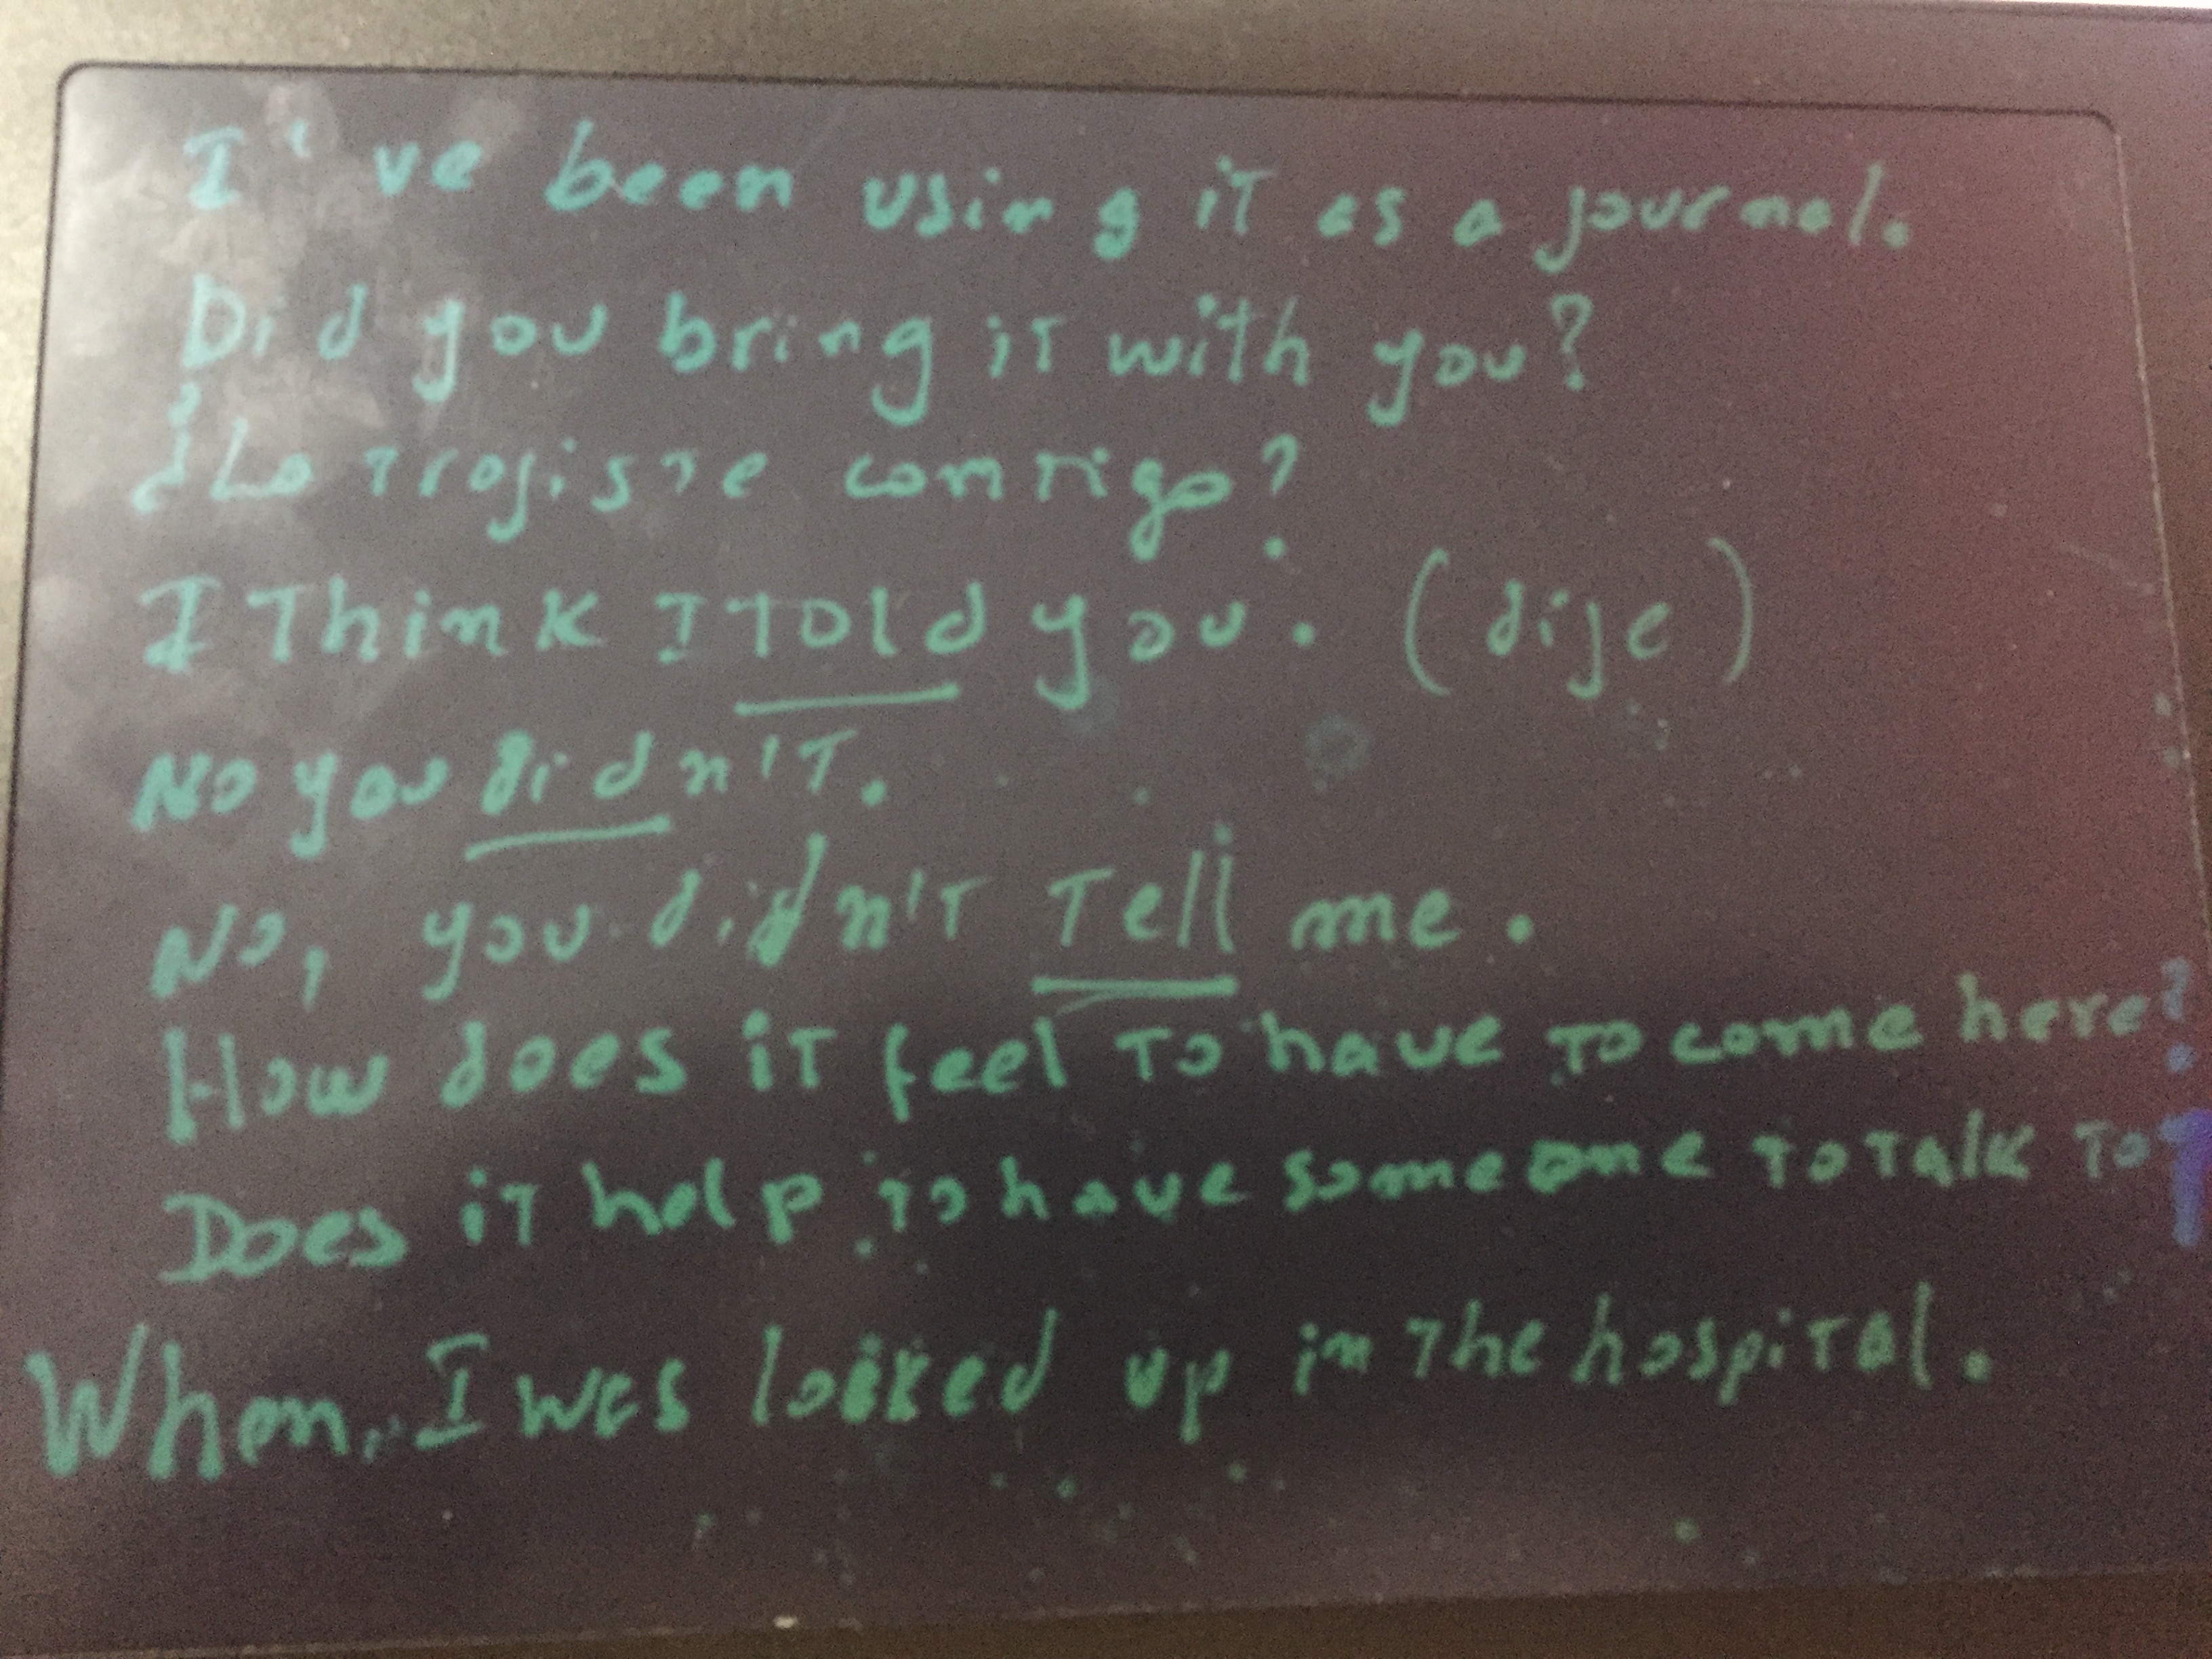 I've been using it as a journal.
Did you bring it with you?
¿Lo trajiste contigo?
I think I told you. (dije)
No you didn't.
No, you didn't tell me.
How does it feel to have to come here?
Does it help to have someone to talk to?
When, I was locked up in the hospital.